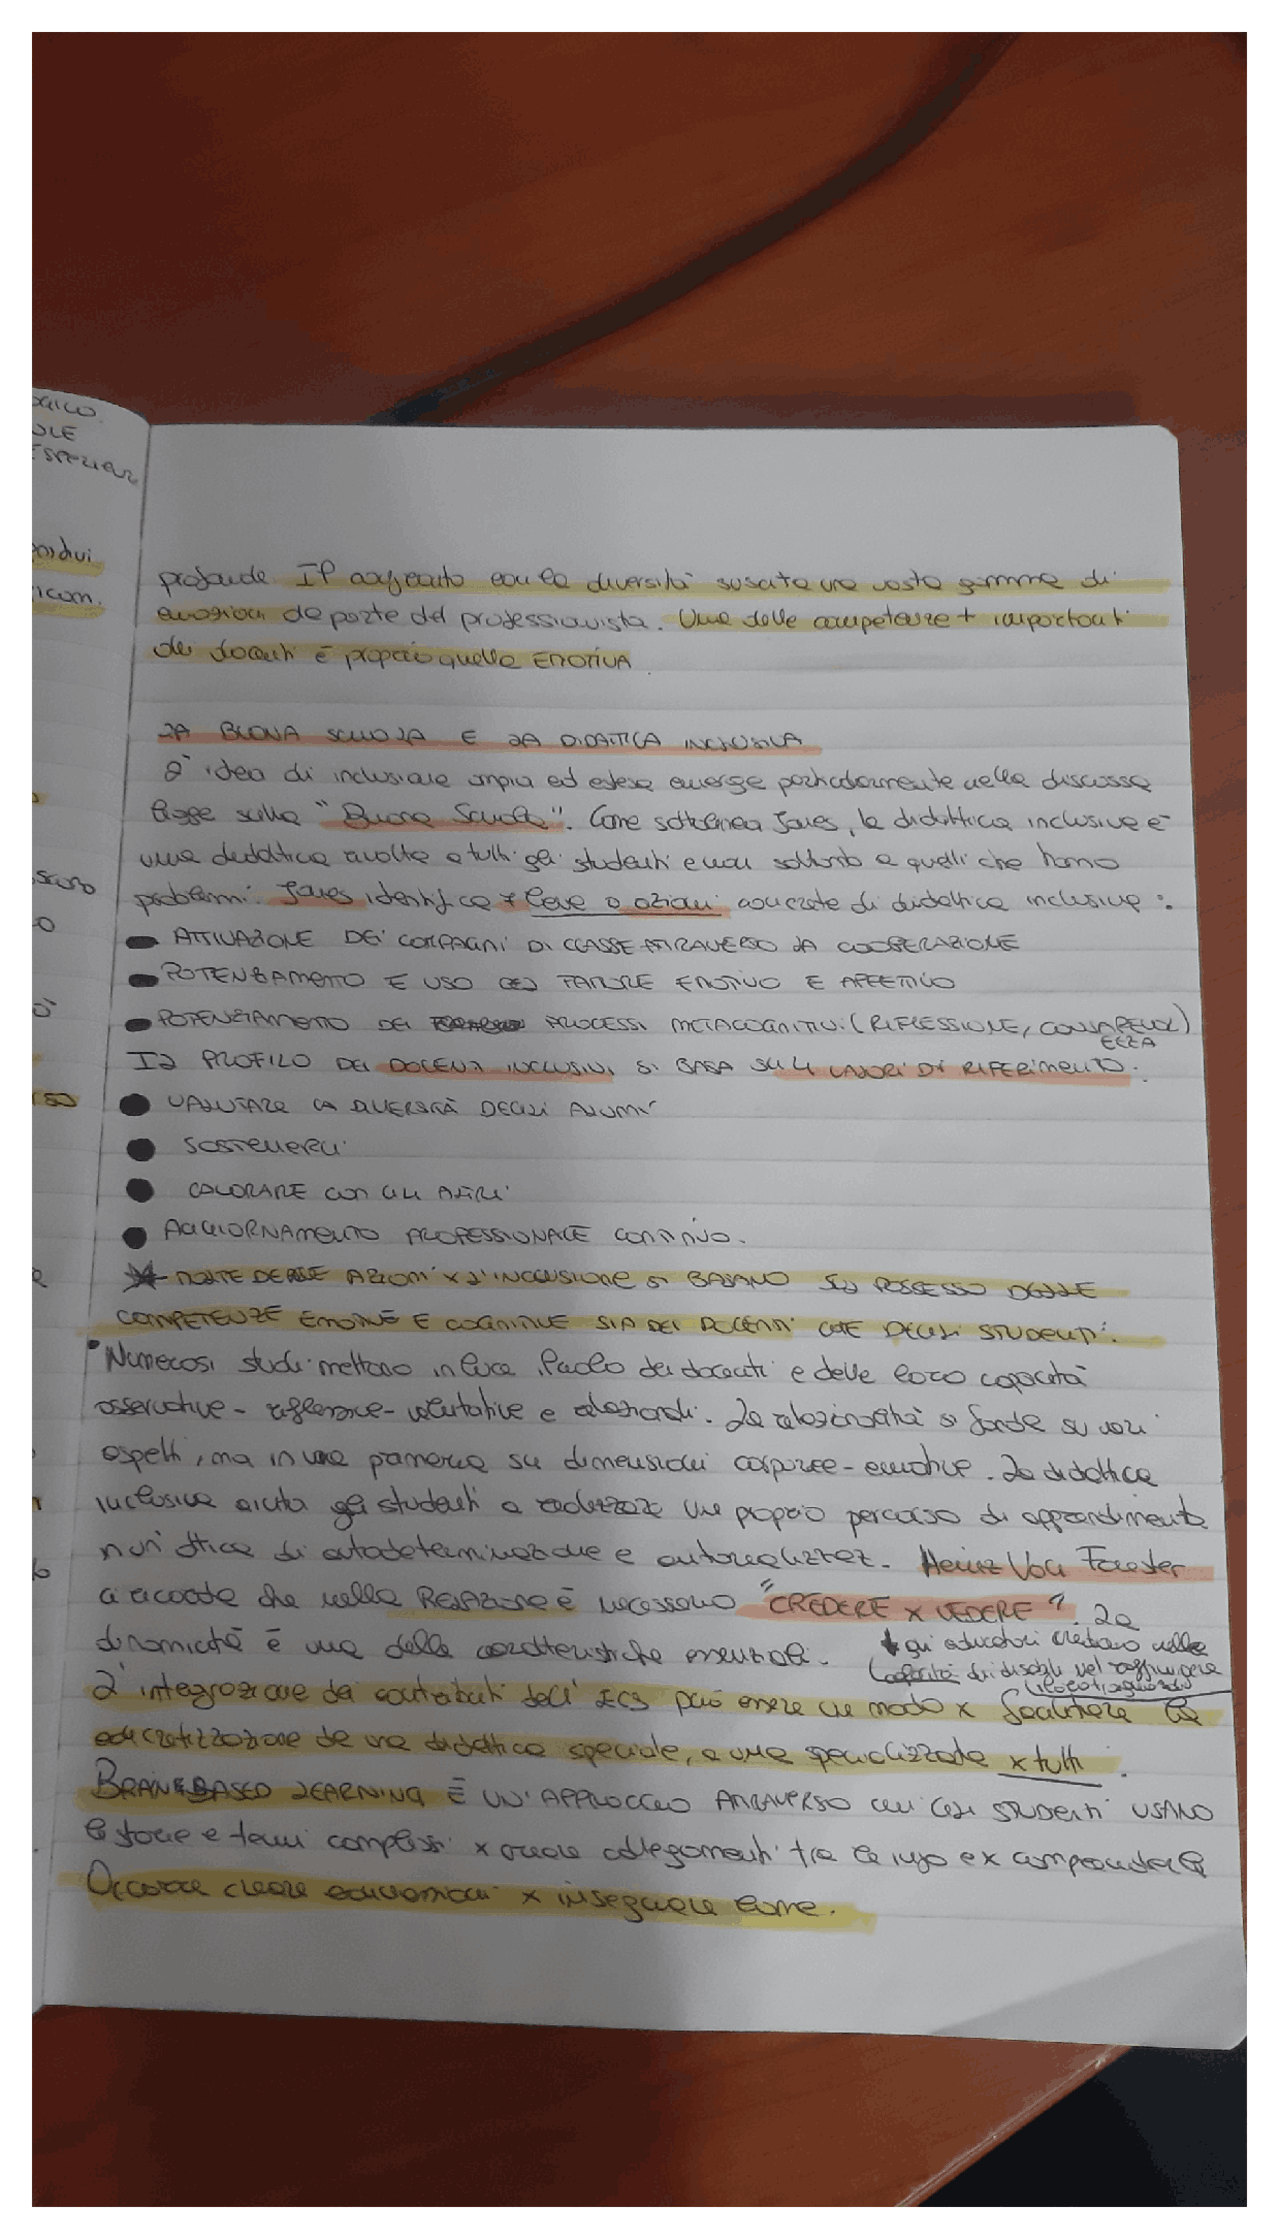 OGICO
OLE
ESPERIENZ
icom.
profonde Il confronto con la diversità suscita una vasta gamma di
emozioni da parte del professionista. Una delle competenze + importanti
dei docenti è proprio quella EMOTIVA
LA BUONA SCUOLA E LA DIDATTICA INCLUSIVA
L'idea di inclusione ampia ed estesa emerge particolarmente nella discussa
legge sulla "Buona Scuola". Come sottolinea Janes, la didattica inclusiva è
una didattica rivolta a tutti gli studenti e non soltanto a quelli che hanno
problemi. Janes identifica leve o azioni concrete di didattica inclusiva:
ATTIVAZIONE DEI COMPAGNI DI CLASSE ATTRAVERSO LA COOPERAZIONE
POTENZIAMENTO E USO DEL FATTORE EMOTIVO E AFFETTIVO
POTENZIAMENTO DEI PROCESSI METACOGNITIVI (RIFLESSIONE, CONSAPEVOL)
EZZA
IL PROFILO DEI DOCENTI INCLUSIVI SI BASA SU 4 VALORI DI RIFERIMENTO:
VALUTARE LA DIVERSITÀ DEGLI ALUNNI
SOSTENERLI
COLORARE CON GLI ALTRI
AGGIORNAMENTO PROFESSIONALE CONTINUO.
MOLTE DELLE AZIONI x L'INCLUSIONE SI BASANO SUL POSSESSO DELLE
COMPETENZE EMOTIVE E COGNITIVE SIA DEI DOCENTI CHE DEGLI STUDENTI.
Numerosi studi mettono in luce il ruolo dei docenti e delle loro capacità
osservative - riflessive - valutative e relazionali. La relazionalità si fonda su vari
aspetti, ma in via primaria su dimensioni corporee - emotive. La didattica
inclusiva aiuta gli studenti a realizzare un proprio percorso di apprendimento
in un'ottica di autodeterminazione e autorealizzaz. Heinz Von Foester
ci ricorda che nella RELAZIONE è necessario "CREDERE x VEDERE". La
dinamicità è una delle caratteristiche essenziali.
gli educatori credano nelle
capacità dei disabili nel raggiungere
L'integrazione dei contributi dell'ECS può essere un modo x facilitare la
concretizzazione da una didattica speciale, a una specializzata x tutti.
BRAIN BASED LEARNING È UN'APPROCCIO ATTRAVERSO CUI GLI STUDENTI USANO
le storie e temi complessi x creare collegamenti tra le info e x comprenderle
Occorre creare economicar x insegnare come.